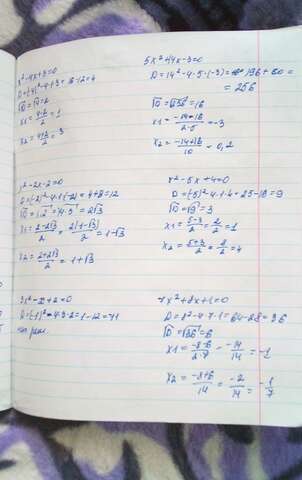 x²-4x+3=0
D=(-4)²-4·3=16-12=4
√D=√4=2
x1=4-2/2=1
x2=4+2/2=3
5x²+14x-3=0
D=14²-4·5·(-3)=196+60=
=256
√D=√256=16
x1=-14-16/2·5=-3
x2=-14+16/10=0,2
x²-2x-2=0
D=(-2)²-4·1·(-2)=4+8=12
√D=√12=√4·3=2√3
x1=2-2√3/2=2(1-√3)/2=1-√3
x2=2+2√3/2=1+√3
x²-5x+4=0
D=(-5)²-4·1·4=25-16=9
√D=√9=3
x1=5-3/2=2/2=1
x2=5+3/2=8/2=4
3x²-x+2=0
D=(-1)²-4·3·2=1-12=-11
7x²+8x+1=0
D=8²-4·7·1=64-28=36
√D=√36=6
x1=-8-6/2·7=-14/14=-1
x2=-8+6/14=-2/14=-1/7